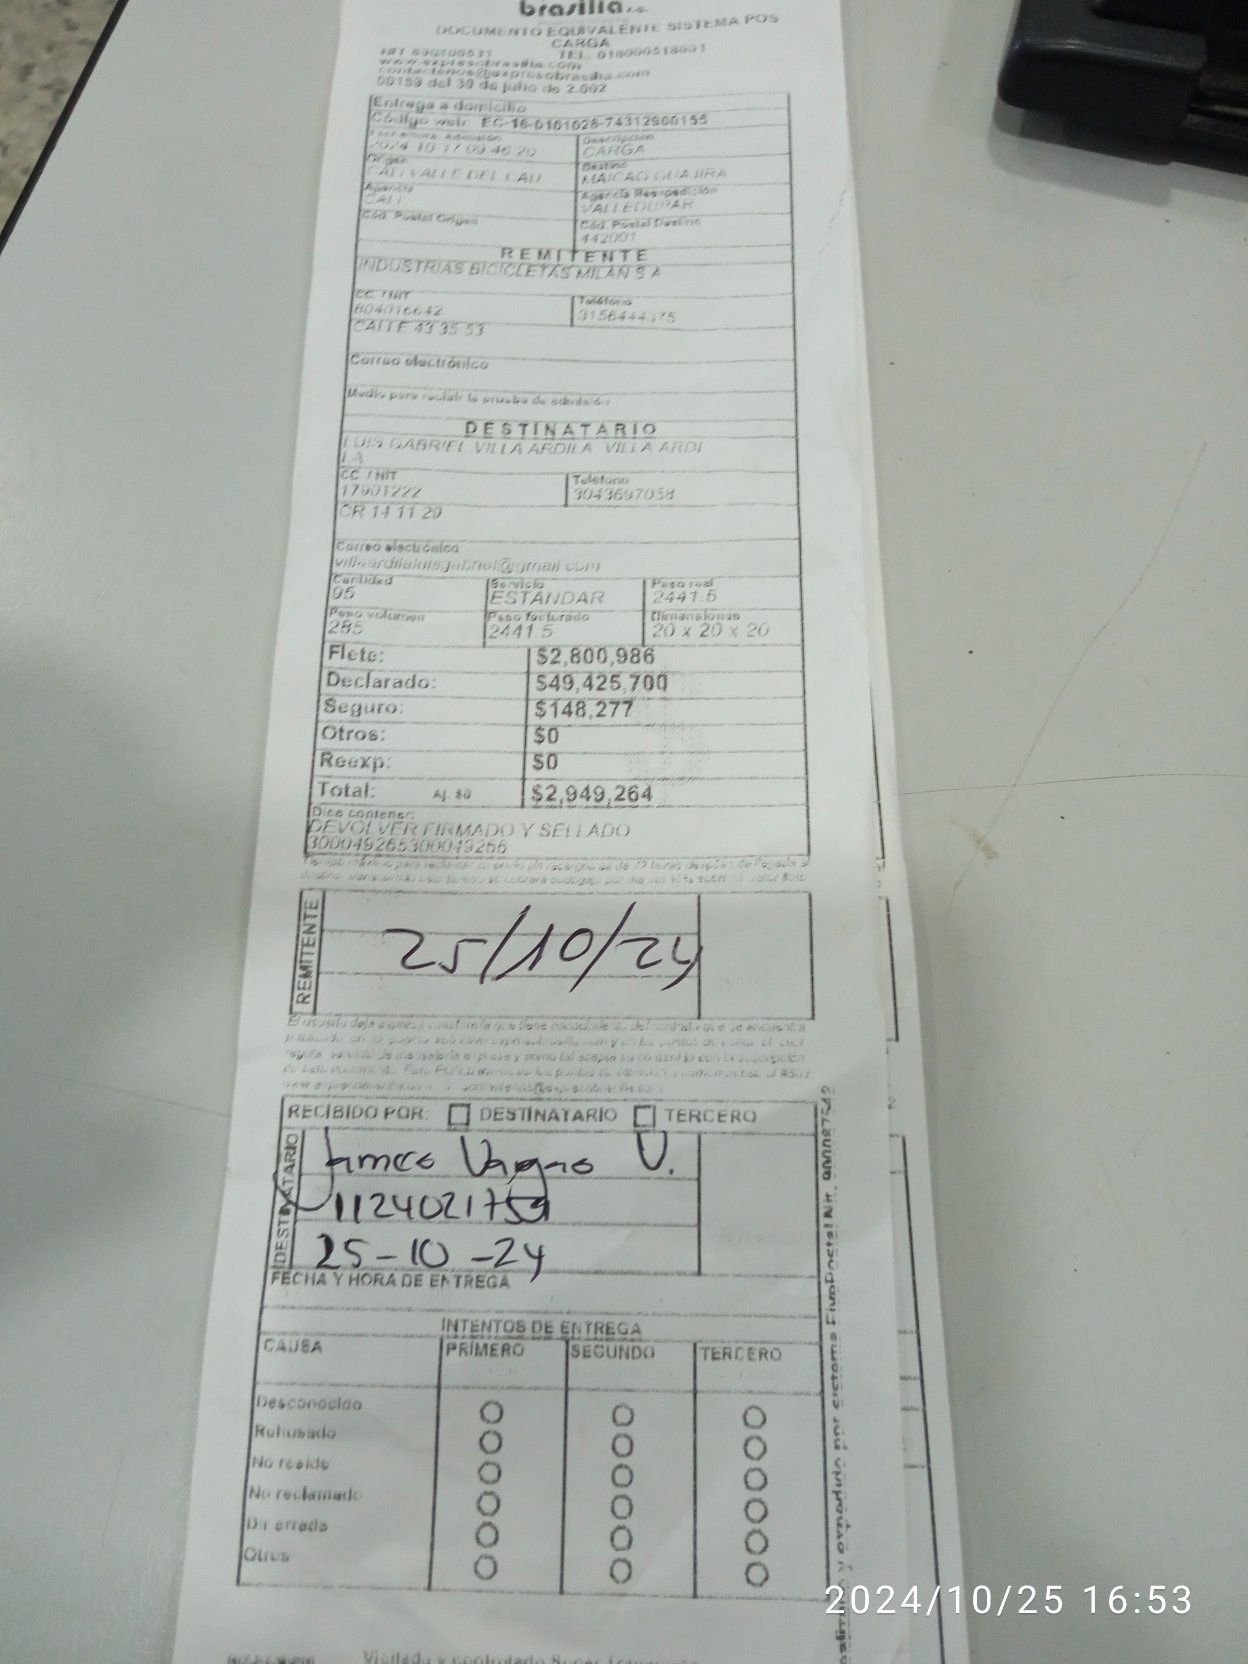 brasilia s.a.
DOCUMENTO EQUIVALENTE SISTEMA POS
CARGA
NIT 890100531 TEL. 018000518001
www.expresobrasilia.com
contactenos@expresobrasilia.com
00199 del 30 de julio de 2.002
Entrega a domicilio
Código web: EC-16-0101028-74312900155
Fecha/hora Admisión Descripción
2024 10 17 09:46:20 CARGA
Origen Destino
CALI VALLE DEL CAU MAICAO GUAJIRA
Agencia Agencia Reexpedición
CALI VALLEDUPAR
Cód. Postal Origen Cód. Postal Destino
442001
REMITENTE
INDUSTRIAS BICICLETAS MILAN S A
CC / NIT Teléfono
804016642 3156444375
CALLE 43 35 53
Correo electrónico
Medio para recibir la prueba de admisión
DESTINATARIO
LUIS GABRIEL VILLA ARDILA VILLA ARDI
LA
CC / NIT Teléfono
17901222 3043697038
CR 14 11 29
Correo electrónico
villaardilaluisgabriel@gmail.com
Cantidad Servicio Peso real
95 ESTANDAR 2441.5
Peso volumen Peso facturado Dimensiones
285 2441.5 20 x 20 x 20
Flete: $2,800,986
Declarado: $49,425,700
Seguro: $148,277
Otros: $0
Reexp: $0
Total: Aj. $0 $2,949,264
Dice contener:
DEVOLVER FIRMADO Y SELLADO
300049265300049266
REMITENTE
25/10/24
El usuario deja expresa constancia que tiene conocimiento del contrato que se encuentra
RECIBIDO POR: DESTINATARIO TERCERO
DESTINATARIO
James Vargas V.
1124021759
25-10-24
FECHA Y HORA DE ENTREGA
INTENTOS DE ENTREGA
CAUSA PRIMERO SEGUNDO TERCERO
Desconocido
Rehusado
No reside
No reclamado
Dir errada
Otros
y expedido por sistema FivePostal Nit. 900087542
Vigilado y controlado Super
2024/10/25 16:53